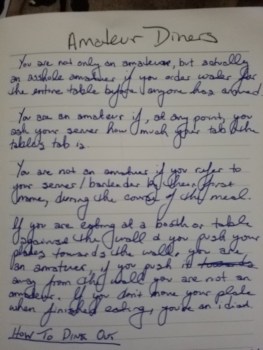 Amateur Diners
You are not only an amateur, but actually
an asshole amateur if you order water for
the entire table before anyone has arrived.
You are an amateur if, at any point, you
ask your server how much your tab/the
tables tab is.
You are not an amateur if you refer to
your server/bartender by their first
name, during the course of the meal.
If you are eating at a booth or table
against the wall & you push your
plates towards the wall, you are
an amateur, if you push it
away from the wall you are not an
amateur. If you don't move your plate
when finished eating, you're an idiot.
HOW TO DINE OUT